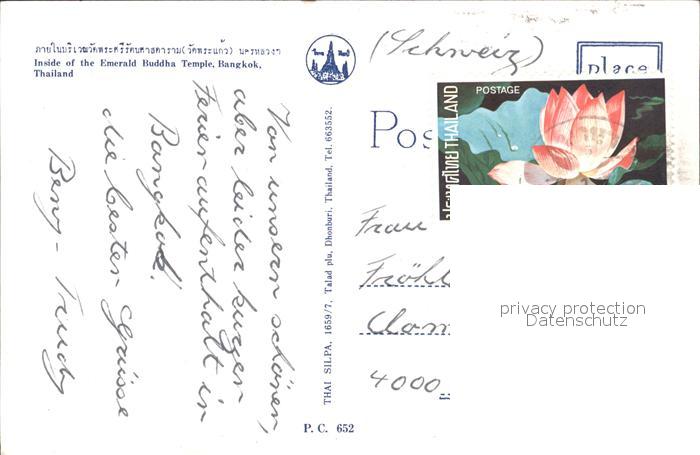 ภายในบริเวณวัดพระศรีรัตนศาสดาราม (วัดพระแก้ว) นครหลวงฯ
Inside of the Emerald Buddha Temple, Bangkok,
Thailand
Von unsern schönen,
aber leider kurzen
Ferienaufenthalt in
Bangkok.
die besten Grüsse
Beny - Trudy
THAI SILPA, 1659/7, Talad plu, Dhonburi, Thailand, Tel. 663552.
P. C. 652
(Schweiz)
place
Pos
POSTAGE
ประเทศไทย THAILAND
Frau
Fröhl
4000
privacy protection
Datenschutz